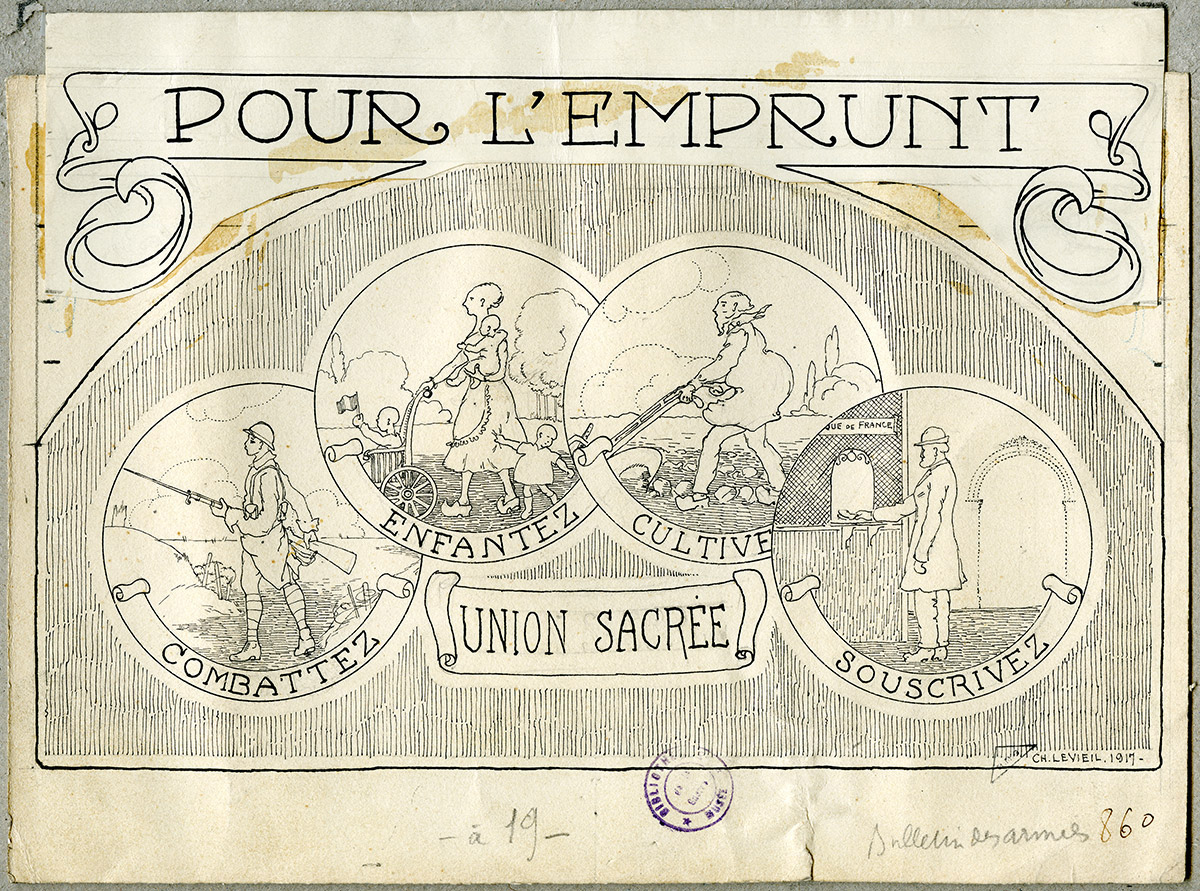 POUR L'EMPRUNT
ENFANTEZ
CULTIVE
QUE DE FRANCE
COMBATTEZ
UNION SACRÉE
SOUSCRIVEZ
CH. LEVIEIL. 1917-
BIBLIOTH
MUSÉE
- à 19 -
Bulletin des armées 860